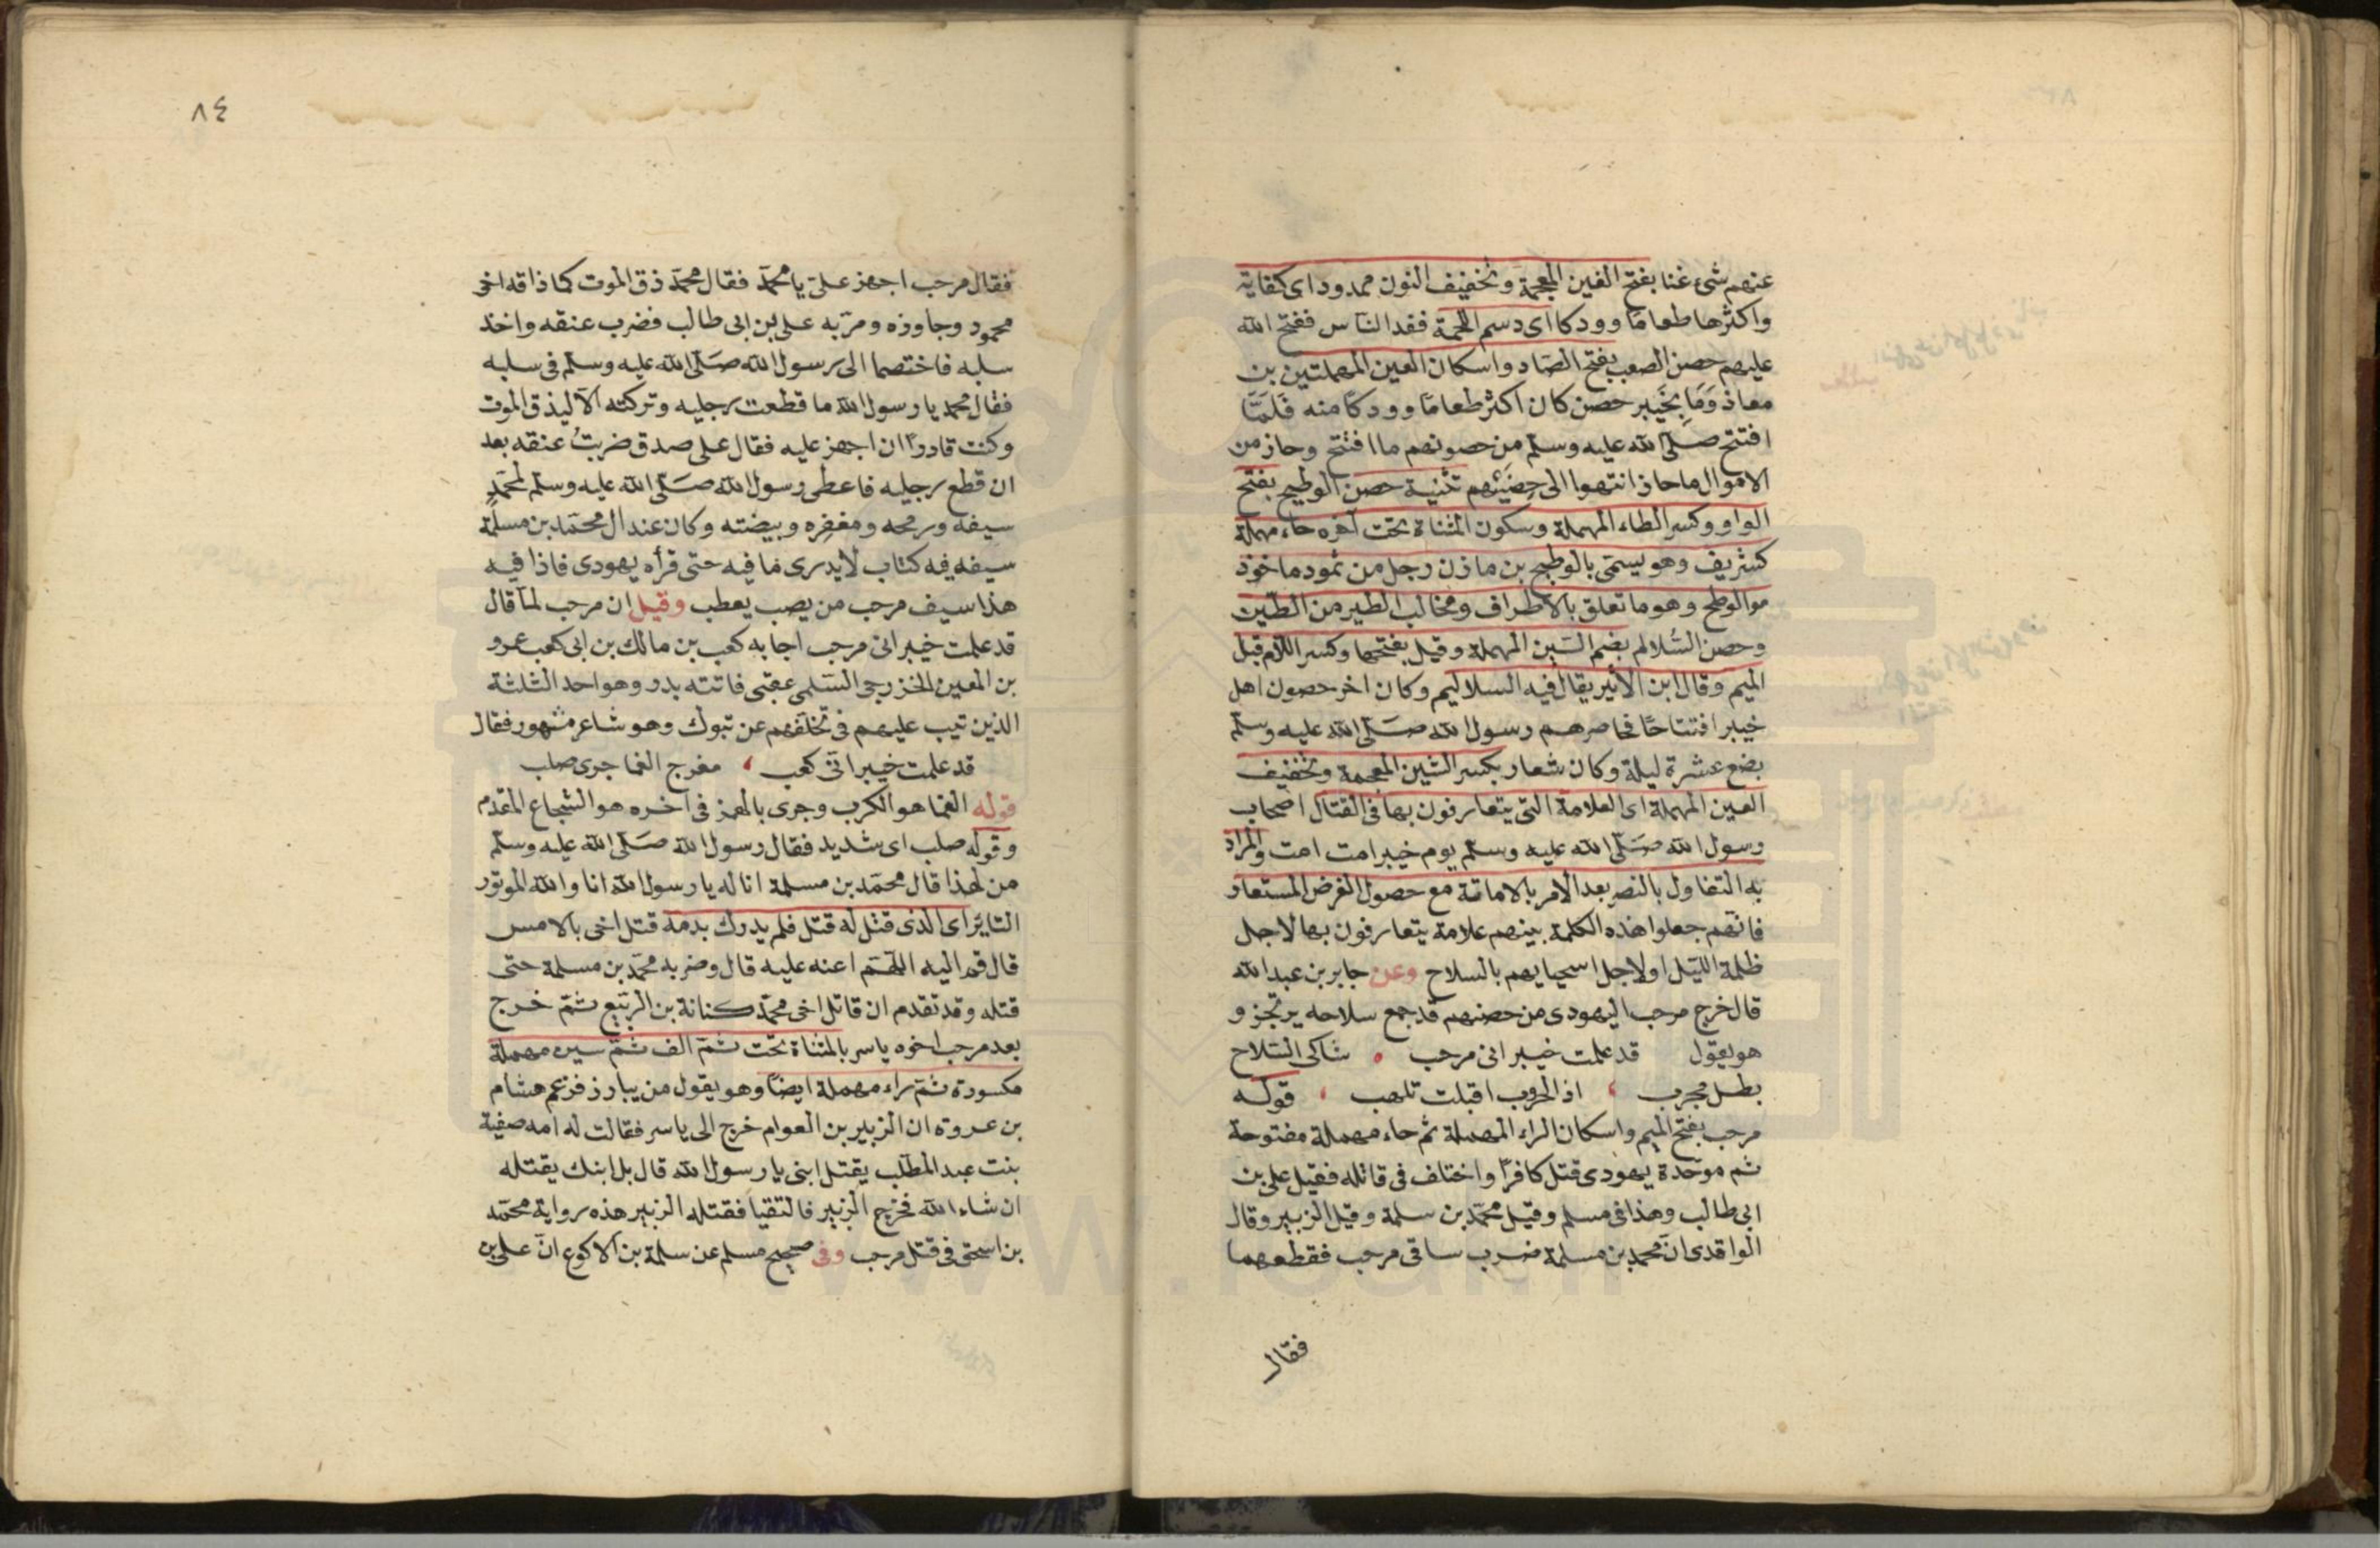 عنهم شئ غنا بفتح الغين المعجمة وتخفيف النون ممدود اى كفاية
واكثرها طعاما وودكا اى دسم اللحمة ففد الناس ففتح الله
عليهم حصن الصعب بفتح الصاد واسكان العين المهملتين بن
معاذ وَمَا بخَيبر حصن كان اكثر طعامًا وودكًا منه فلمَّا
افتتح صلى الله عليه وسلم من حصونهم ما افتتح وحاز من
الاموال ما حاز انتهوا الى حِصْنَيْهم تثنية حصن الوطيح بفتح
الواو وكسر الطاء المهملة وسكون المثناة تحت آخره حاء مهملة
كشريف وهو يسمّى بالوطيح بن مازن رجل من ثمود ماخوذ
من الوطح وهو ما تعلق بالاظراف ومخالب الطير من الطين
وحصن السُّلالم بضم السّين المهملة وقيل بفتحها وكسر اللام قبل
الميم وقال ابن الأثير يقال فيه السلاليم وكان اخر حصون اهل
خيبر افتتاحًا فحاصرهم رسول الله صَلّى الله عليه وسلّم
بضع عشرة ليلة وكان شعار بكسر الشين المعجمة وتخفيف
العين المهملة اى العلامة التى يتعارفون بها فى القتال اصحاب
رسول الله صَلّى الله عليه وسلّم يوم خيبر امت امت والمراد
به التفاول بالنصر بعد الامر بالاماتة مع حصول الغرض المستعار
فانهم جعلوا هذه الكلمة بينهم علامة يتعارفون بها لاجل
ظلمة الليل او لاجل اسحيايهم بالسلاح وعن جابر بن عبد الله
قال خرج مرحب اليهودى من حصنهم قد جمع سلاحه يرتجز و
هو يقول قد علمت خيبر انى مرحب ه شاكى السّلاح
بطل مجرب ، اذ الحروب اقبلت تلهب ، قوله
مرحب بفتح الميم واسكان الراء المهملة ثم حاء مهملة مفتوحة
ثم موحّدة يهودى قتل كافرًا واختلف فى قاتله فقيل على بن
ابى طالب وهذا فى مسلم وقيل محمّد بن سلمة وقيل الزبير وقال
الواقدى انّ محمد بن مسلمة ضرب ساقى مرحب فقطعهما
فقال
٨٤
فقال مرحب اجهز علىّ يا محمّد فقال محمّد ذق الموت كما ذاقه اخى
محمود وجاوزه ومرّ به على بن ابى طالب فضرب عنقه واخذ
سلبه فاختصما الى رسول الله صَلّى الله عليه وسلّم فى سلبه
فقال محمد يا رسول الله ما قطعت رجليه وتركته الّا ليذق الموت
وكنت قادرًا ان اجهز عليه فقال على صدق ضربتُ عنقه بعد
ان قطع رجليه فاعطى رسول الله صَلّى الله عليه وسلّم لمحمّدٍ
سيفه ورمحه ومغفره وبيضته وكان عند ال محمّد بن مسلمة
سيفه فيه كتاب لا يدرى ما فيه حتى قرأه يهودى فاذا فيه
هذا سيف مرحب من يصب يعطب وقيل ان مرحب لمّا قال
قد علمت خيبر انى مرحب اجابه كعب بن مالك بن ابى كعب عمرو
بن المعين الخزرجى السّلمى عقبى فاتته بدر وهو احد الثلثة
الذين تيب عليهم فى تخلفهم عن تبوك وهو شاعر مشهور فقال
قد علمت خيبر انّى كعب ، مفرج الغما جرى صلب
قوله الغما هو الكرب وجرى بالهمز فى آخره هو الشجاع المقدم
وقوله صلب اى شديد فقال رسول الله صَلّى الله عليه وسلّم
من لهذا قال محمّد بن مسلمة انا له يا رسول الله انا والله الموتور
الثاير اى الذى قتل له قتل فلم يدرك بدمه قتل اخى بالامس
قال قم اليه اللّهمّ اعنه عليه قال وضربه محمّد بن مسلمة حتى
قتله وقد تقدم ان قاتل اخى محمّد كنانة بن الربيع ثمّ خرج
بعد مرحب اخوه ياسر بالمثناة تحت ثمّ الف ثمّ سين مهملة
مكسورة ثمّ راء مهملة ايضًا وهو يقول من يبارز فزعم هشام
بن عروة ان الزبير بن العوام خرج الى ياسر فقالت له امه صفية
بنت عبد المطّلب يقتل ابنى يا رسول الله قال بل ابنك يقتله
ان شاء الله فخرج الزبير فالتقيا فقتله الزبير هذه رواية محمّد
بن اسحق فى قتل مرحب وفى صحيح مسلم عن سلمة بن الاكوع انّ على بن